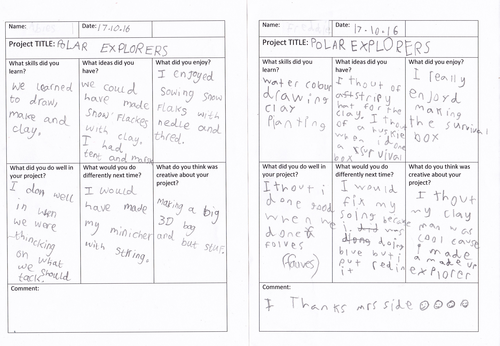 Name:
Date: 17-10.16
Project TITLE: POLAR EXPLORERS
What skills did you
learn?
we learned
to draw,
make and
clay.
What ideas did you
have?
we could
have made
snow flackes
with clay.
I had
tent and
What did you enjoy?
I enjoyed
Sowing snow
flacks with
needle and
thred.
What did you do well in
your project?
I don well
in when
we were
thincking
on what
we should
tack.
What would you do
differently next time?
I would
have made
my minicher
with string.
What do you think was
creative about your
project?
Making a big
3D bag
and but stuf.
Comment:
Name:
Date: 17-10.16
Project TITLE: POLAR EXPLORERS
What skills did you
learn?
water colour
drawing
clay
Planting
What ideas did you
have?
I thout of
a stripy
hat for the
clay. I thout
of a huskie
when i done
a survival
box
What did you enjoy?
I really
enjoyd
making
the survival
box
What did you do well in
your project?
I thout i
done good
when we
done
folves
(Gloves)
What would you do
differently next time?
I would
fix my
soing becase
i did was
doing doing
blue but i
put red in
it
What do you think was
creative about your
project?
I thout
my clay
man was
cool cause
i made
a made up
explorer
Comment:
I Thanks mrs side